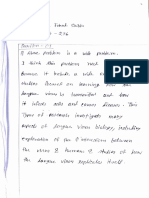 Question - 01
A given problem is a wide problem.
I think this problem such
because it include a wide
Council on learning how the
dengue virus is transmitted and how
it infects cells and causes disease. This
type of research investigate many
aspects of dengue virus biology, including
exploration of the interactions between
the virus & humans & studies of how
the dengue virus replicates itself